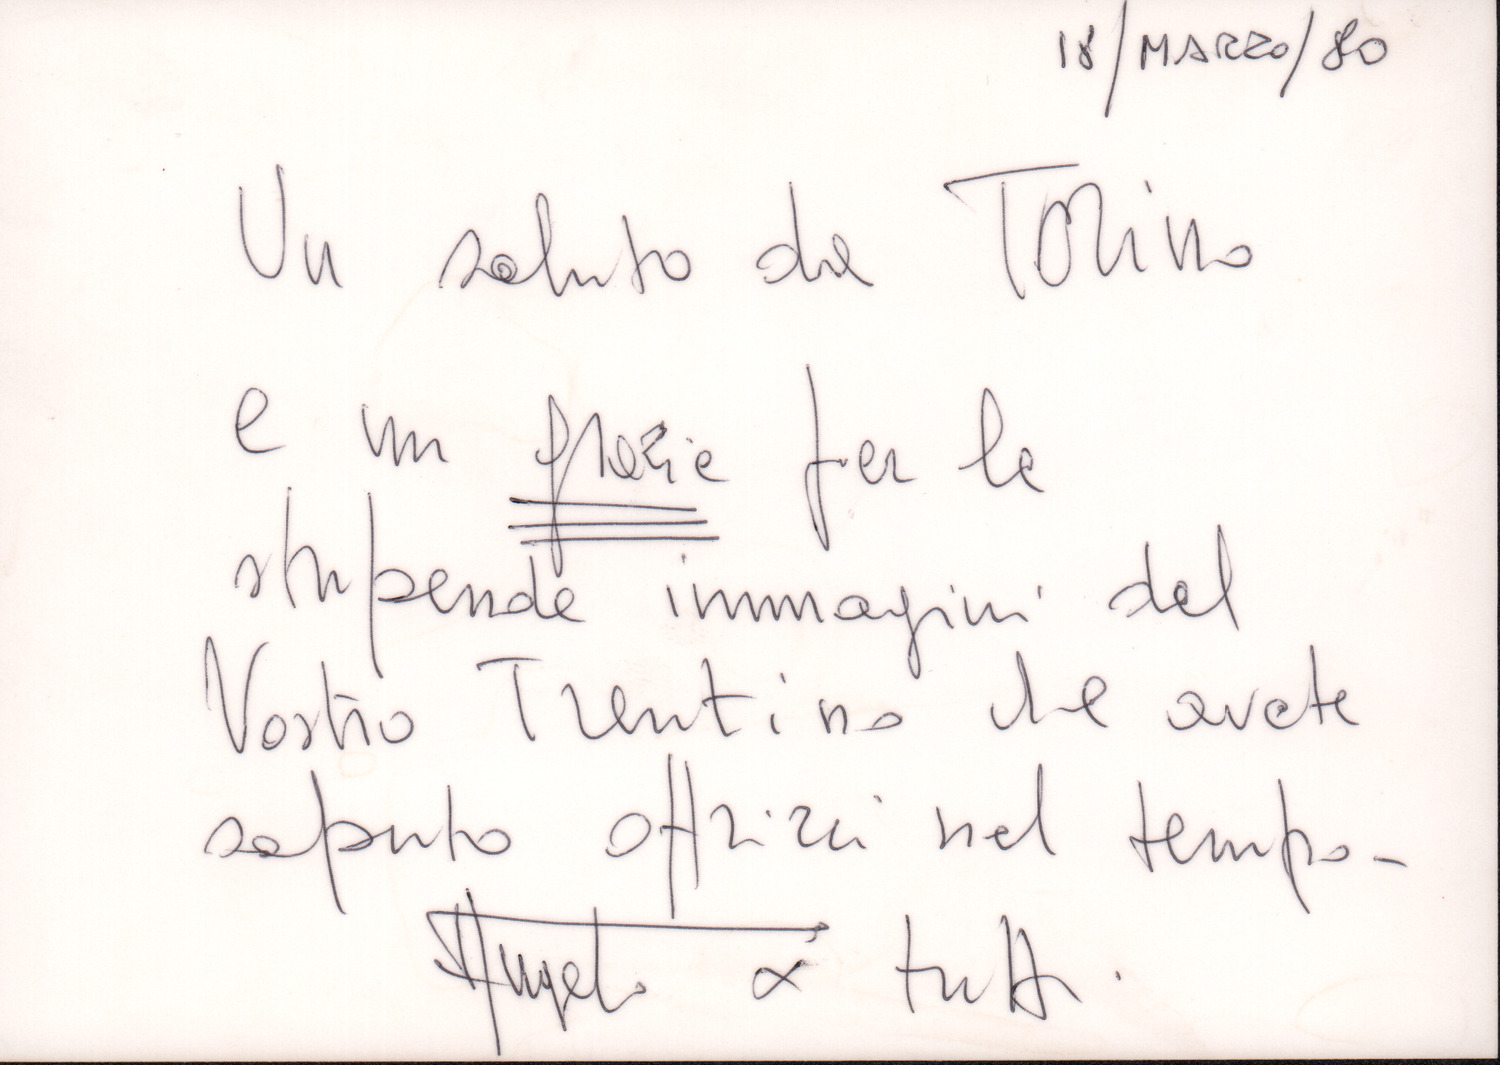 18/MARZO/80
Un saluto da Torino
e un grazie per le
stupende immagini del
Vostro Trentino che avete
saputo offrirci nel tempo-
a tutti.